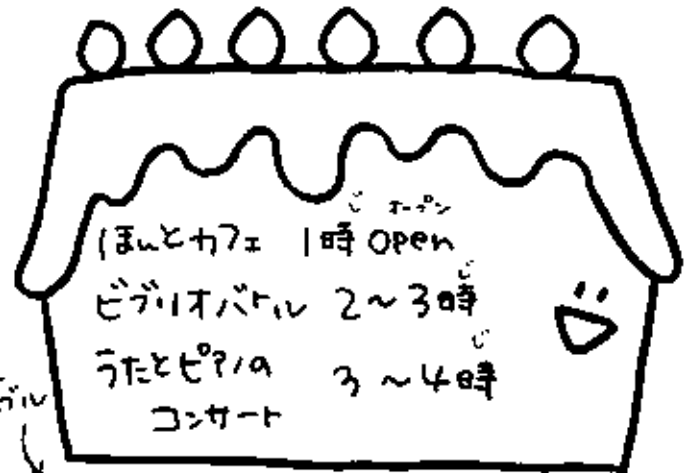 ほんとカフェ 1時 open
じ オープン
ビブリオバトル 2〜3時
じ
うたとピアノの
コンサート 3〜4時
じ